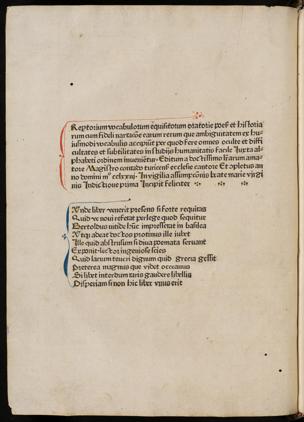 Reptorium vocabulorum exquisitorum oratorie poesis et historia
rum cum fideli narratione earum rerum que ambiguitatem ex hu
iusmodi vocabulis accipiunt per quod fere omnes occulte et diffi
cultates et subtilitates in studijs humanitatis facile iuxta al=
phabeti ordinem inveniuntur Editum a doctissimo litterarum ama=
tore Magistro conrado turicensis ecclesie cantore Et completus an
no domini mº cclxxiij In vigilia assumptionis beate marie virgi
nis Indictione prima Incipit feliciter
Unde liber venerit presens si forte requiras
Quid ve novi referat perlege quod sequitur
Bertoldus nitide hunc impresserat in basilea
Utque adeat doctos protinus ille iubet
Ille quid abstrusum si diva poemata servant
Exponit lector ingeniose scies
Quid larium teucri dignum quid grecia gessit
Preterea magnus que videt occeanus
Si libet interdum raris gaudere libellis
Disperiam si non hic liber unus erit